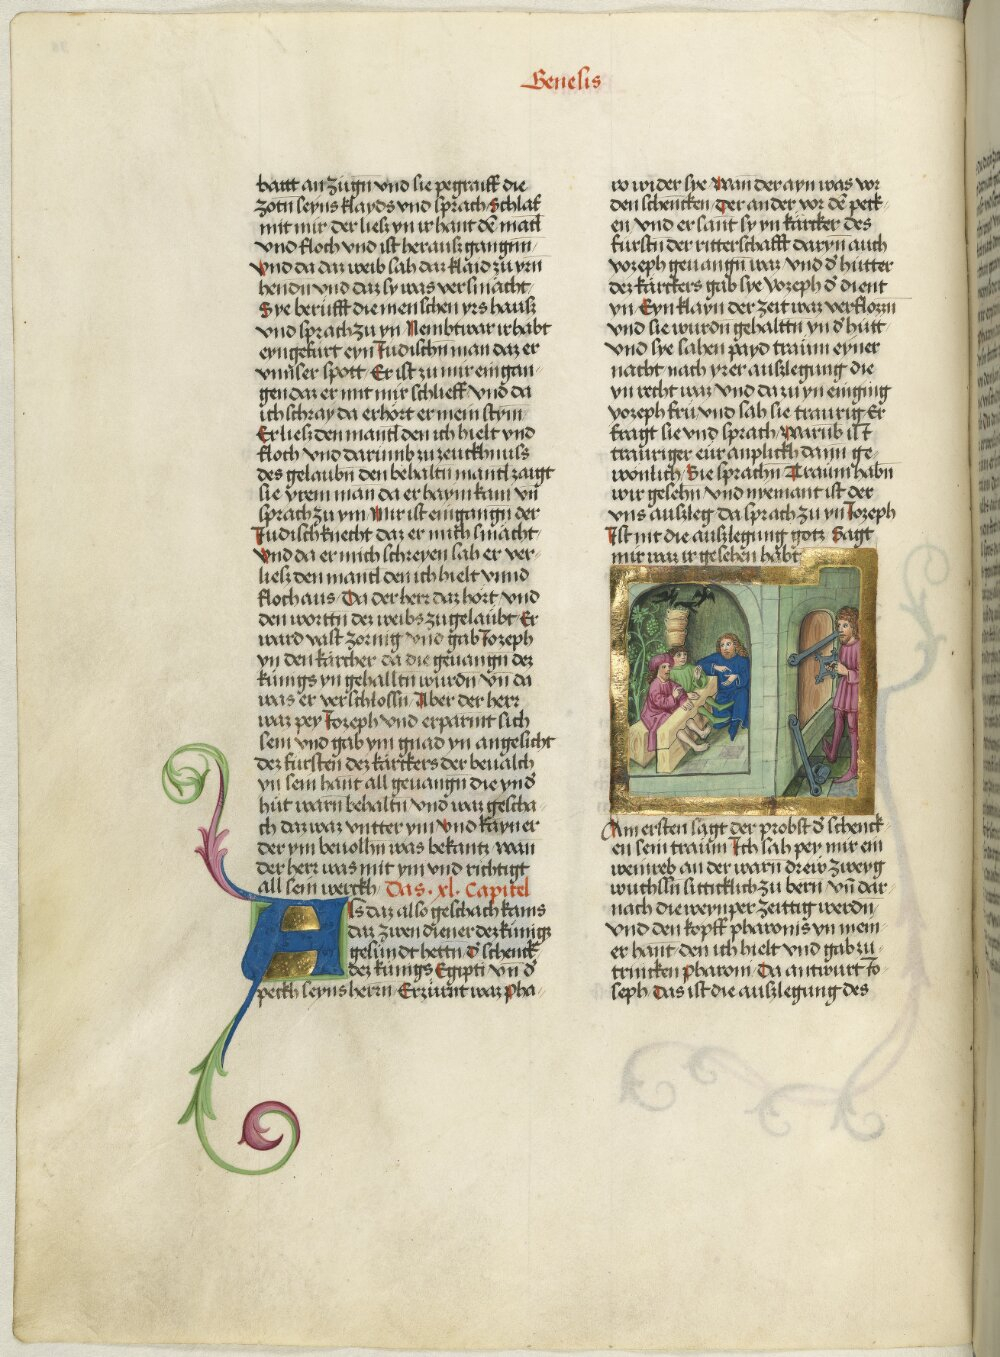 Genesis
hantt an zügn vnd sie pegraiff die
zotn seyns klayds vnd sprach Schlaf
mit mir der liesz yn ir hant dē mātl
vnd floch vnd ist herausz gangnn
Vnd da daz weib sah daz klaid zu yrn
hendn vnd daz sy was versmächt
Sye berüfft die menschen yrs hausz
vnd sprach zu yn Nembt war ir habt
eyngefürt eyn Judischn man daz er
vnnser spott Er ist zu mir eingan
gen daz er mit mir schlieff vnd da
ich schray da erhört er mein stym
Er liesz den mantl den ich hielt vnd
floch vnd darumb zu zeuckhnuss
des gelaubn den behaltn mantl zaigt
sie yrem man da er haym kam vn̄
sprach zu ym Mir ist eingangn der
Judisch knecht daz er mich smächt
Vnd da er mich schreyen sah er ver
liesz den mantl den ich hielt vnnd
floch aus Da der herr daz hort vnd
den worttn des weibs zu gelaubt Er
ward vast zornig vnd gab Joseph
yn den kärcher da die geuangn dez
künigs yn gehalltn wurdn vn̄ da
was er verschlossn Aber der herr
waz pey Joseph vnd erparmt sich
sein vnd gab ym gnad yn angesicht
dez fursten dez kärckers der beualch
yn sein hant all geuangn die yn d̄
hüt warn behaltn vnd waz gescha
ch daz waz vntter ym Vnd kayner
der ym beuolhn was bekant wan
der herr was mit ym vnd richtigt
all sein werckh Das .xl. Capitel
As daz also geschach kams
daz zwen diener dez künigz
gesündt hettn d̄ schenck
dez künigs Egipti vn̄ d̄
peckh seyns herrn Erzürnt waz Pha
ro wider sye Wan der ayn was vor
den schencken Der ander vor dē peck
en vnd er sant sy yn kärcker des
fürstn der ritterschafft daryn auch
yoseph geuangn war vnd d̄ hütter
dez kärckers gab sye Yoseph d̄ dient
yn Eyn klayn der zeit waz verflozzn
vnd sie wurdn gehalttn yn d̄ hütt
vnd sye sahen payd traum eyner
nacht nach yrer auslegung die
yn recht war vnd da zu yn einging
yoseph frü vnd sah sie traurig Er
fragt sie vnd sprach Warub ist
trauriger eur anplickh dann ge
wonlich Sie sprachn Traum habn
wir gesehn vnd nyemant ist der
vns auszleg da sprach zu yn Joseph
Ist nit die auszlegung gotz Sagt
mir waz ir gesehen habt
Am ersten sagt der probst d̄ schenck
en sein traum Ich sah pey mir ein
weinreb an der warn drew zweyg
wuchssn sitticklich zu bern vn̄ dar
nach die weynper zeittig werdn
vnd den kopff pharonis yn mein
er hant den ich hielt vnd gab zu
trincken Pharoni Da antwurt Jo
seph Das ist die auszlegung des